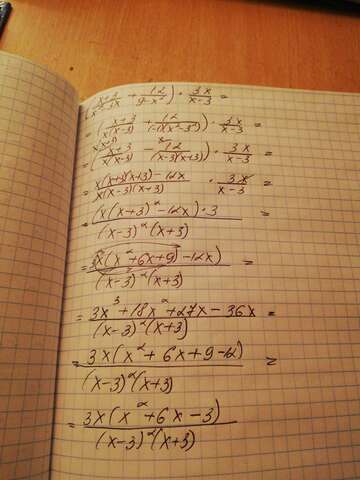 (x+3/x²-3x + 12/9-x²) · 3x/x-3 =
= (x+3/x(x-3) + 12/(-1)(x²-3²)) · 3x/x-3 =
= (x+3/x(x-3) - 12/(x-3)(x+3)) · 3x/x-3 =
= x(x+3)(x+3)-12x/x(x-3)(x+3) · 3x/x-3 =
= (x(x+3)²-12x)·3/(x-3)²(x+3) =
= 3x(x²+6x+9)-12x)/(x-3)²(x+3) =
= 3x³+18x²+27x-36x/(x-3)²(x+3) =
= 3x(x²+6x+9-12)/(x-3)²(x+3) =
= 3x(x²+6x-3)/(x-3)²(x+3)